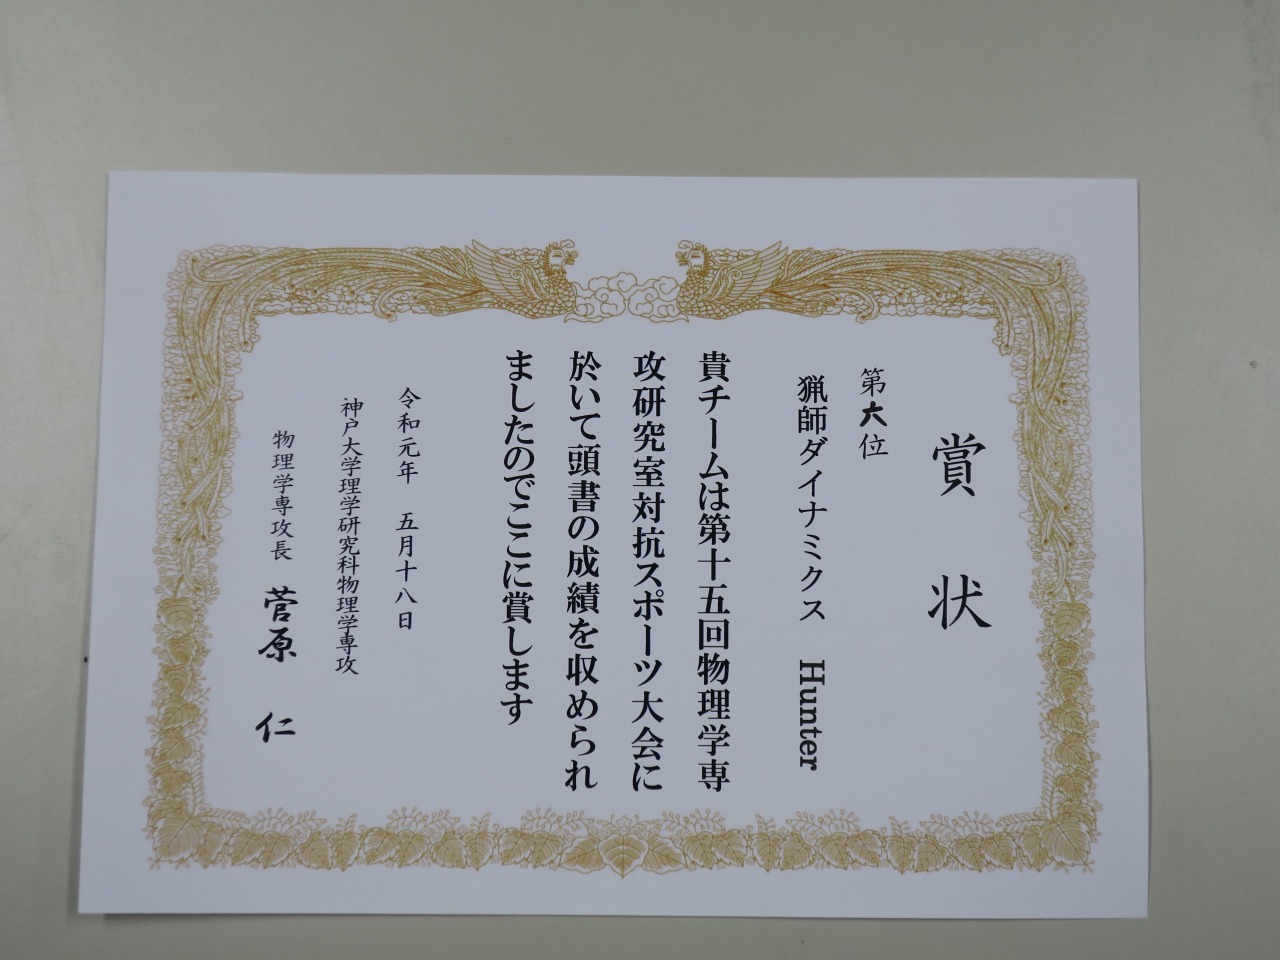 賞状
第六位
猟師ダイナミクス Hunter
貴チームは第十五回物理学専
攻研究室対抗スポーツ大会に
於いて頭書の成績を収められ
ましたのでここに賞します
令和元年 五月十八日
神戸大学理学研究科物理学専攻
物理学専攻長 菅原 仁